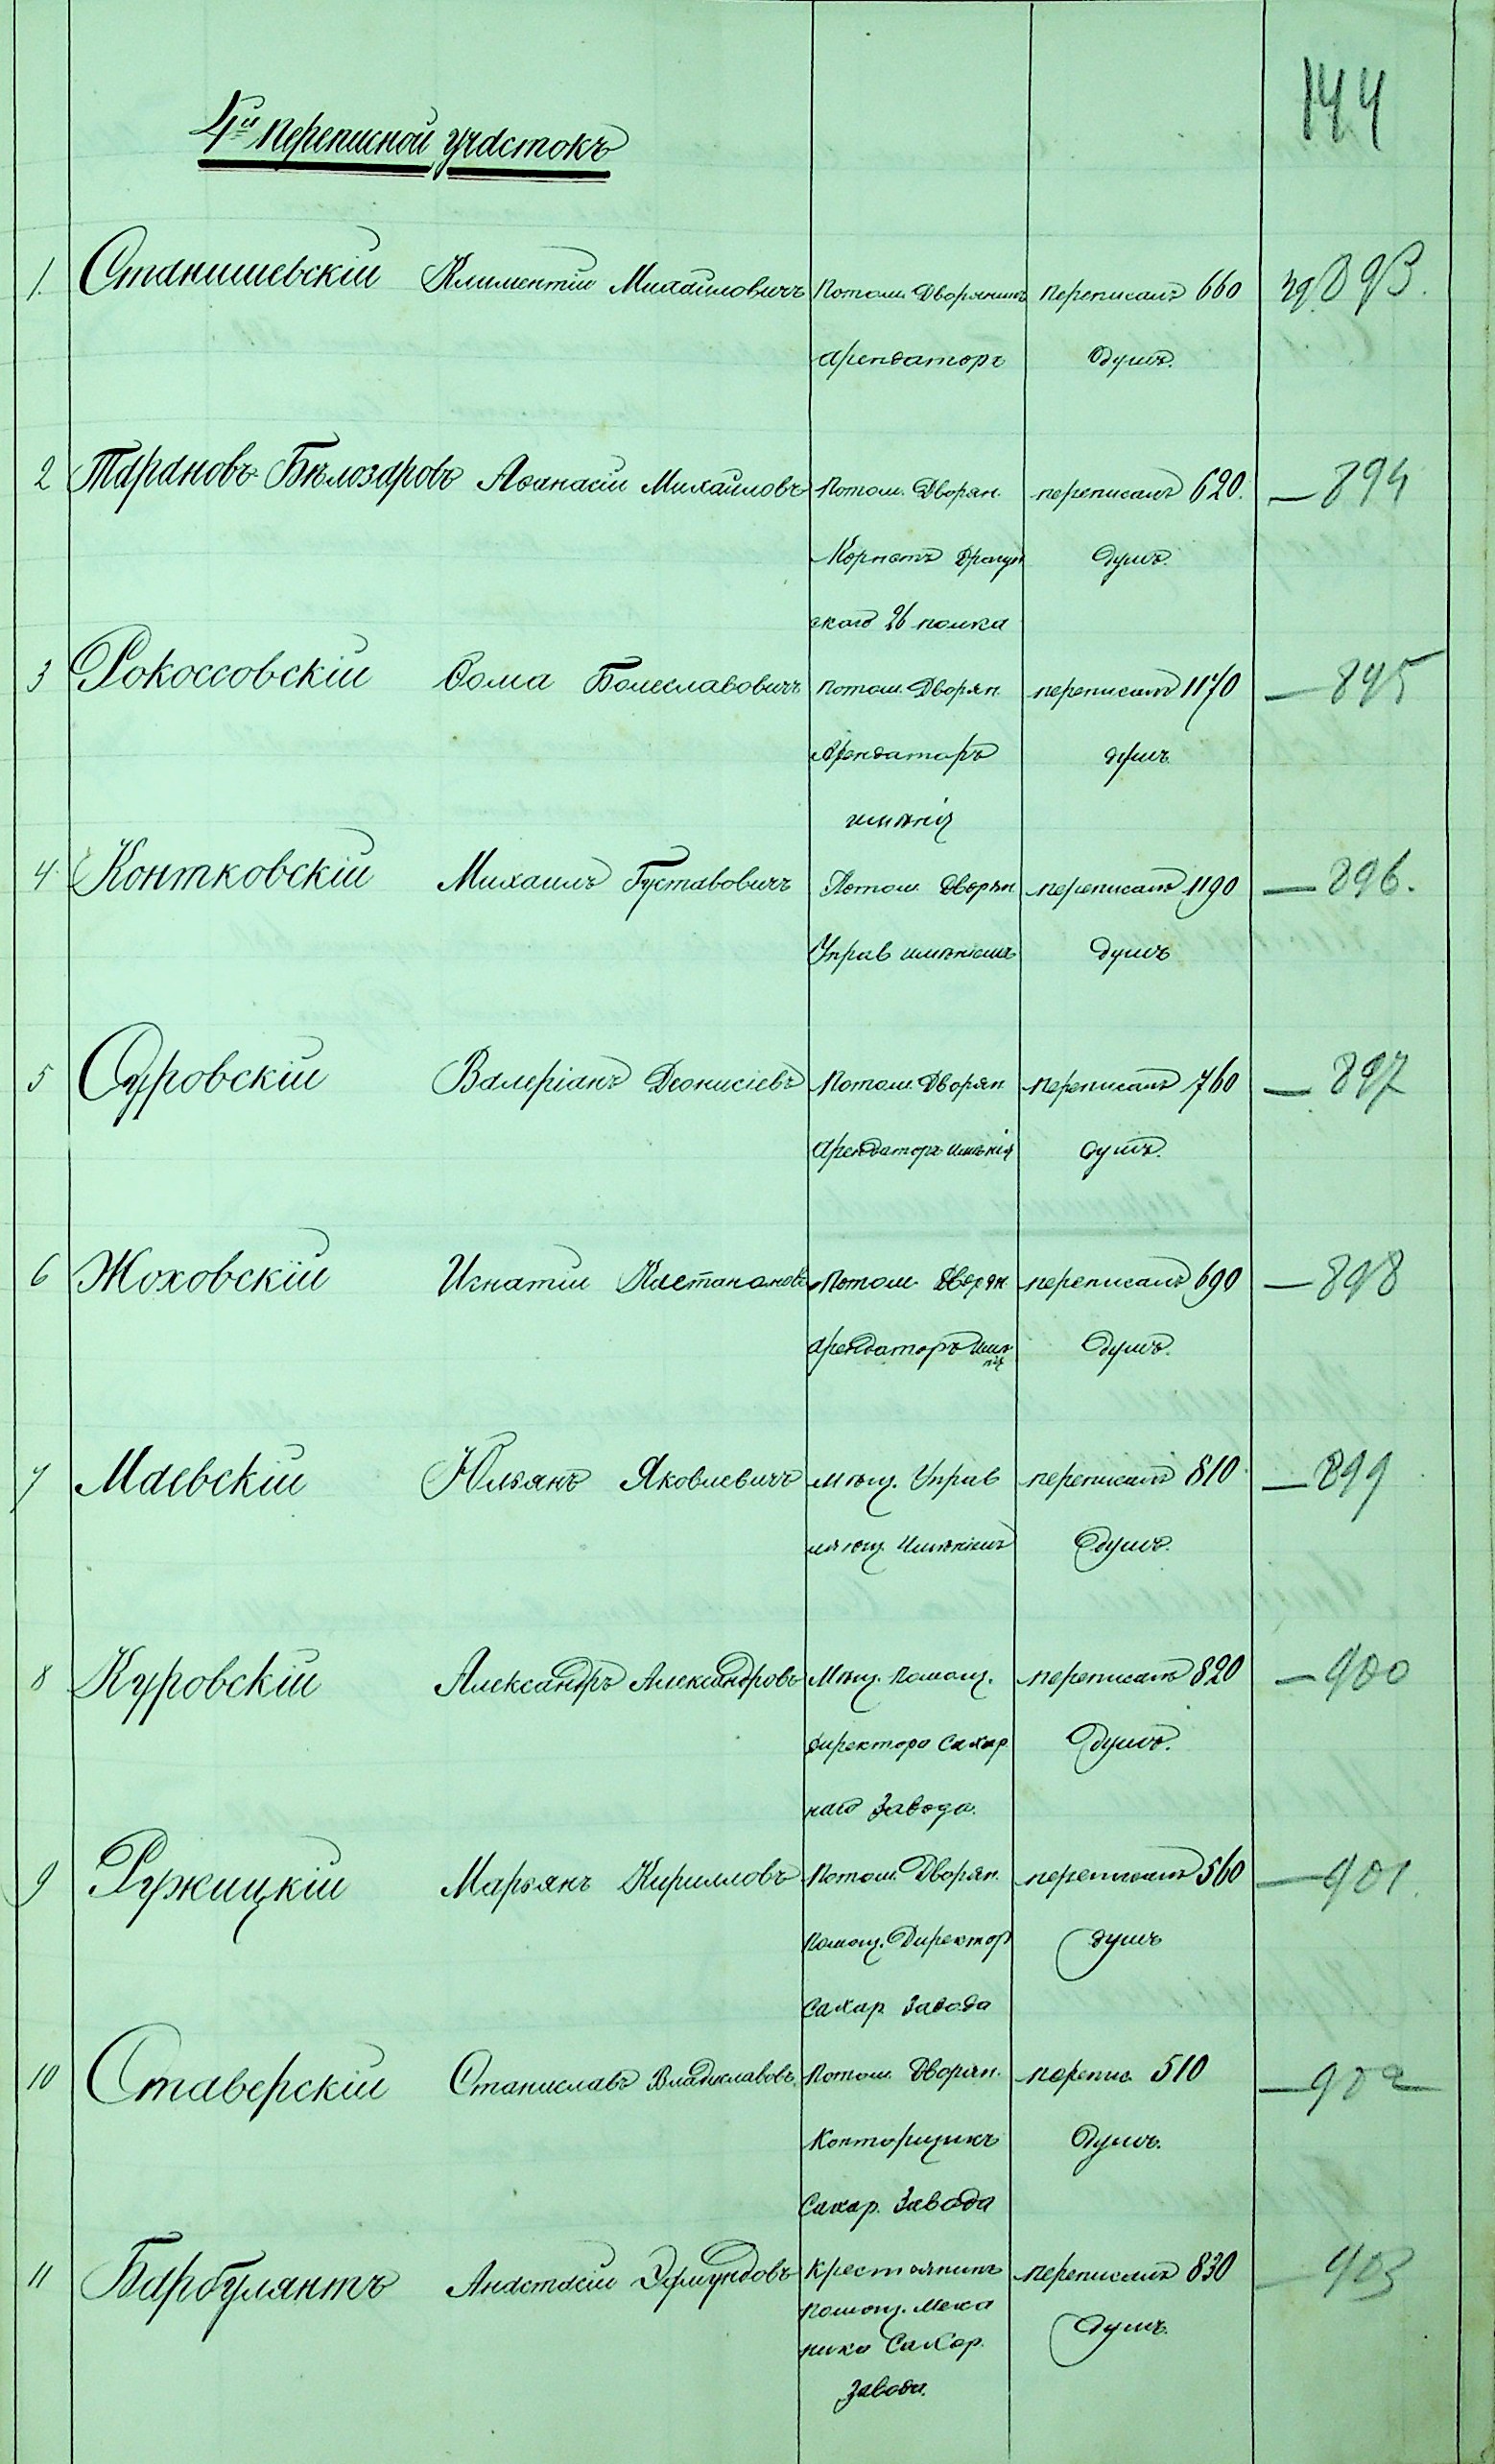 144
4й переписной участокъ
1. Станишевскій Климентій Михайловичъ Потом. Дворянинъ переписалъ 660 893.
арендаторъ душъ.
2 Тарановъ-Бѣлозаровъ Аѳанасій Михайловъ Потом. Дворян. переписалъ 620. — 894
Корнетъ Драгун
скаго 26 полка душъ.
3 Рокоссовскій Ѳома Болеславовичъ потом. Дворян. переписалъ 1170 — 895
Арендаторъ душъ
имѣнія
4. Контковскій Михаилъ Густавовичъ Потом. Дворян переписалъ 1190 — 896.
Управ имѣніемъ душъ
5 Суровскій Валеріанъ Діонисіевъ Потом. Дворян. переписалъ 760 — 897
арендаторъ имѣнія душъ.
6 Жоховскій Игнатій Потом. Дворян переписалъ 690 — 898
арендаторъ имѣ
нія душъ.
7 Маевскій Юльянъ Яковлевичъ мѣщ. Управ переписалъ 810 — 899
ляющ. Имѣніемъ душъ.
8 Куровскій Александръ Александровъ Мѣщ. помощ. переписалъ 820 — 900
директора Сахар душъ.
наго Завода.
9 Ружицкій Марьянъ Кирилловъ Потом. Дворян. переписалъ 560 — 901.
помощ. Директор душъ
Сахар Завода
10 Ставерскій Станиславъ Владиславовъ. Потом. Дворян. перепис. 510 — 902
Конторщикъ душъ.
Сахар. Завода
11 Барбулянтъ Анастасій Эдмундовъ Крестьянинъ переписалъ 830 — 903
помощ. меха душъ.
ника Сахар.
завода.